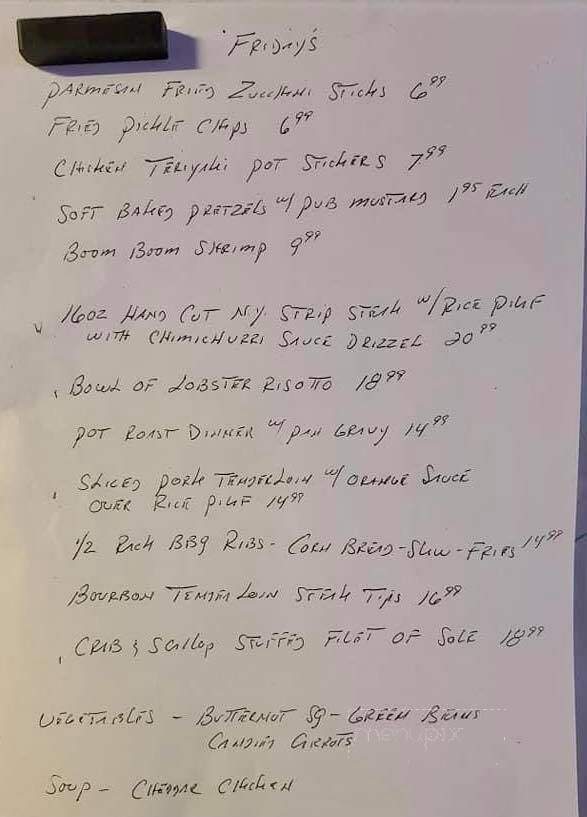 FRIDAY'S
PARMESAN FRIED ZUCCHINI STICKS 6.99
FRIED PICKLE CHIPS 6.99
CHICKEN TERIYAKI POT STICKERS 7.99
SOFT BAKED PRETZELS W/ PUB MUSTARD 1.95 EACH
BOOM BOOM SHRIMP 9.99
16OZ HAND CUT N.Y. STRIP STEAK W/ RICE PILAF
WITH CHIMICHURRI SAUCE DRIZZEL 20.99
BOWL OF LOBSTER RISOTTO 18.99
POT ROAST DINNER W/ PAN GRAVY 14.99
SLICED PORK TENDERLOIN W/ ORANGE SAUCE
OVER RICE PILAF 14.99
1/2 RACK BBQ RIBS - CORN BREAD - SLAW - FRIES 14.99
BOURBON TENDERLOIN STEAK TIPS 16.99
CRAB & SCALLOP STUFFED FILET OF SOLE 18.99
VEGETABLES - BUTTERNUT SQ - GREEN BEANS
CANDIED CARROTS
menupix
SOUP - CHEDDAR CHICKEN